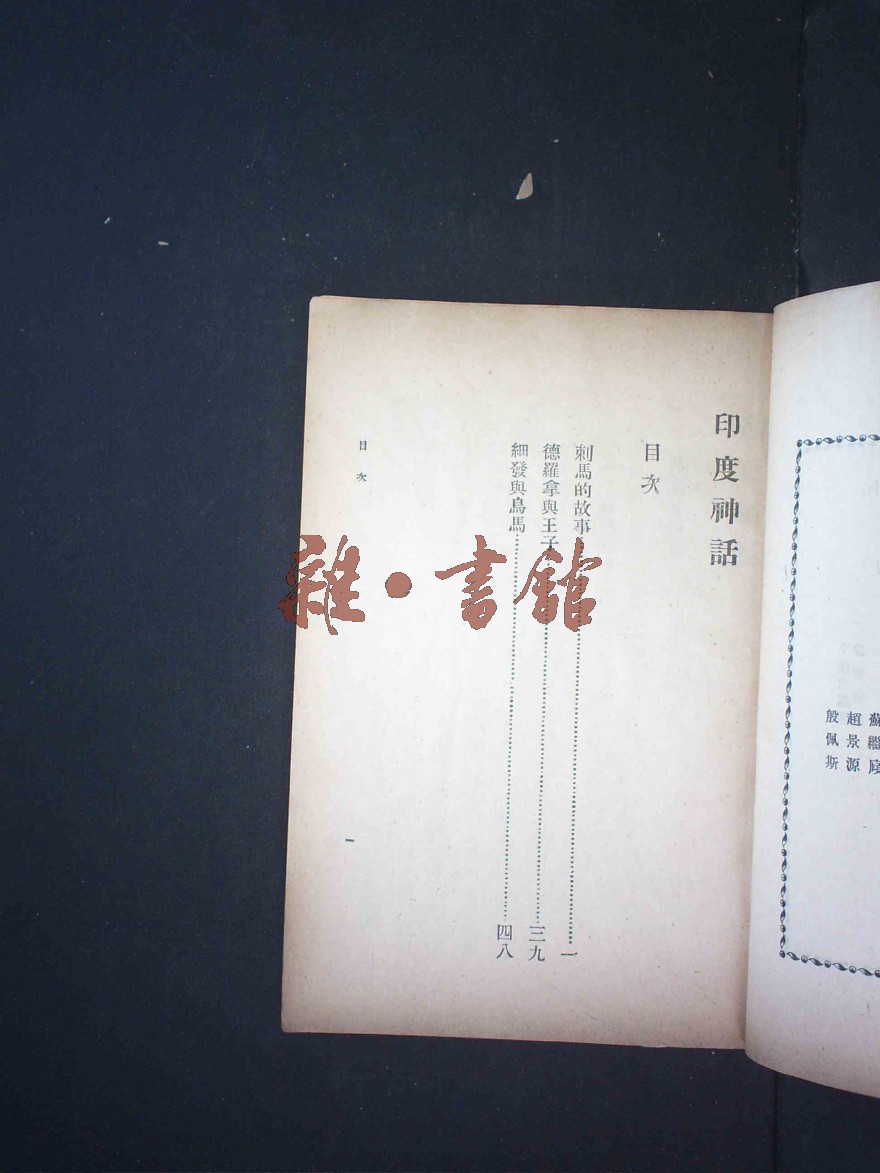 印度神話
目次
刺馬的故事…………一
德羅拿與王子…………三九
細發與烏馬…………四八
目次
一
趙景源
殷佩斯
雜·書館